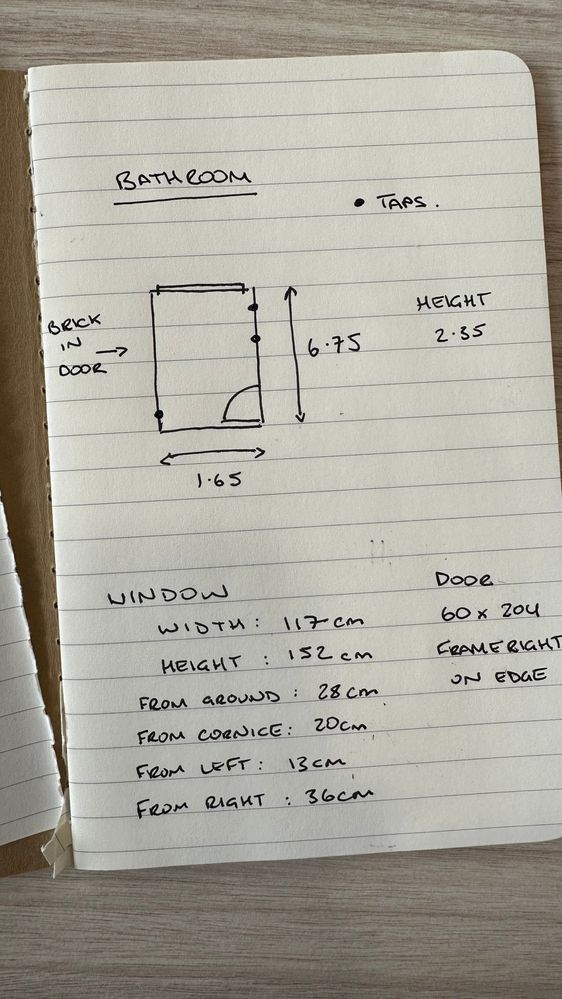 BATHROOM
• TAPS.
BRICK
IN
DOOR
6.75
HEIGHT
2.35
1.65
WINDOW
WIDTH: 117cm
HEIGHT: 152cm
FROM GROUND: 28cm
FROM CORNICE: 20cm
FROM LEFT: 13cm
FROM RIGHT: 36cm
DOOR
60 x 204
FRAME RIGHT
ON EDGE